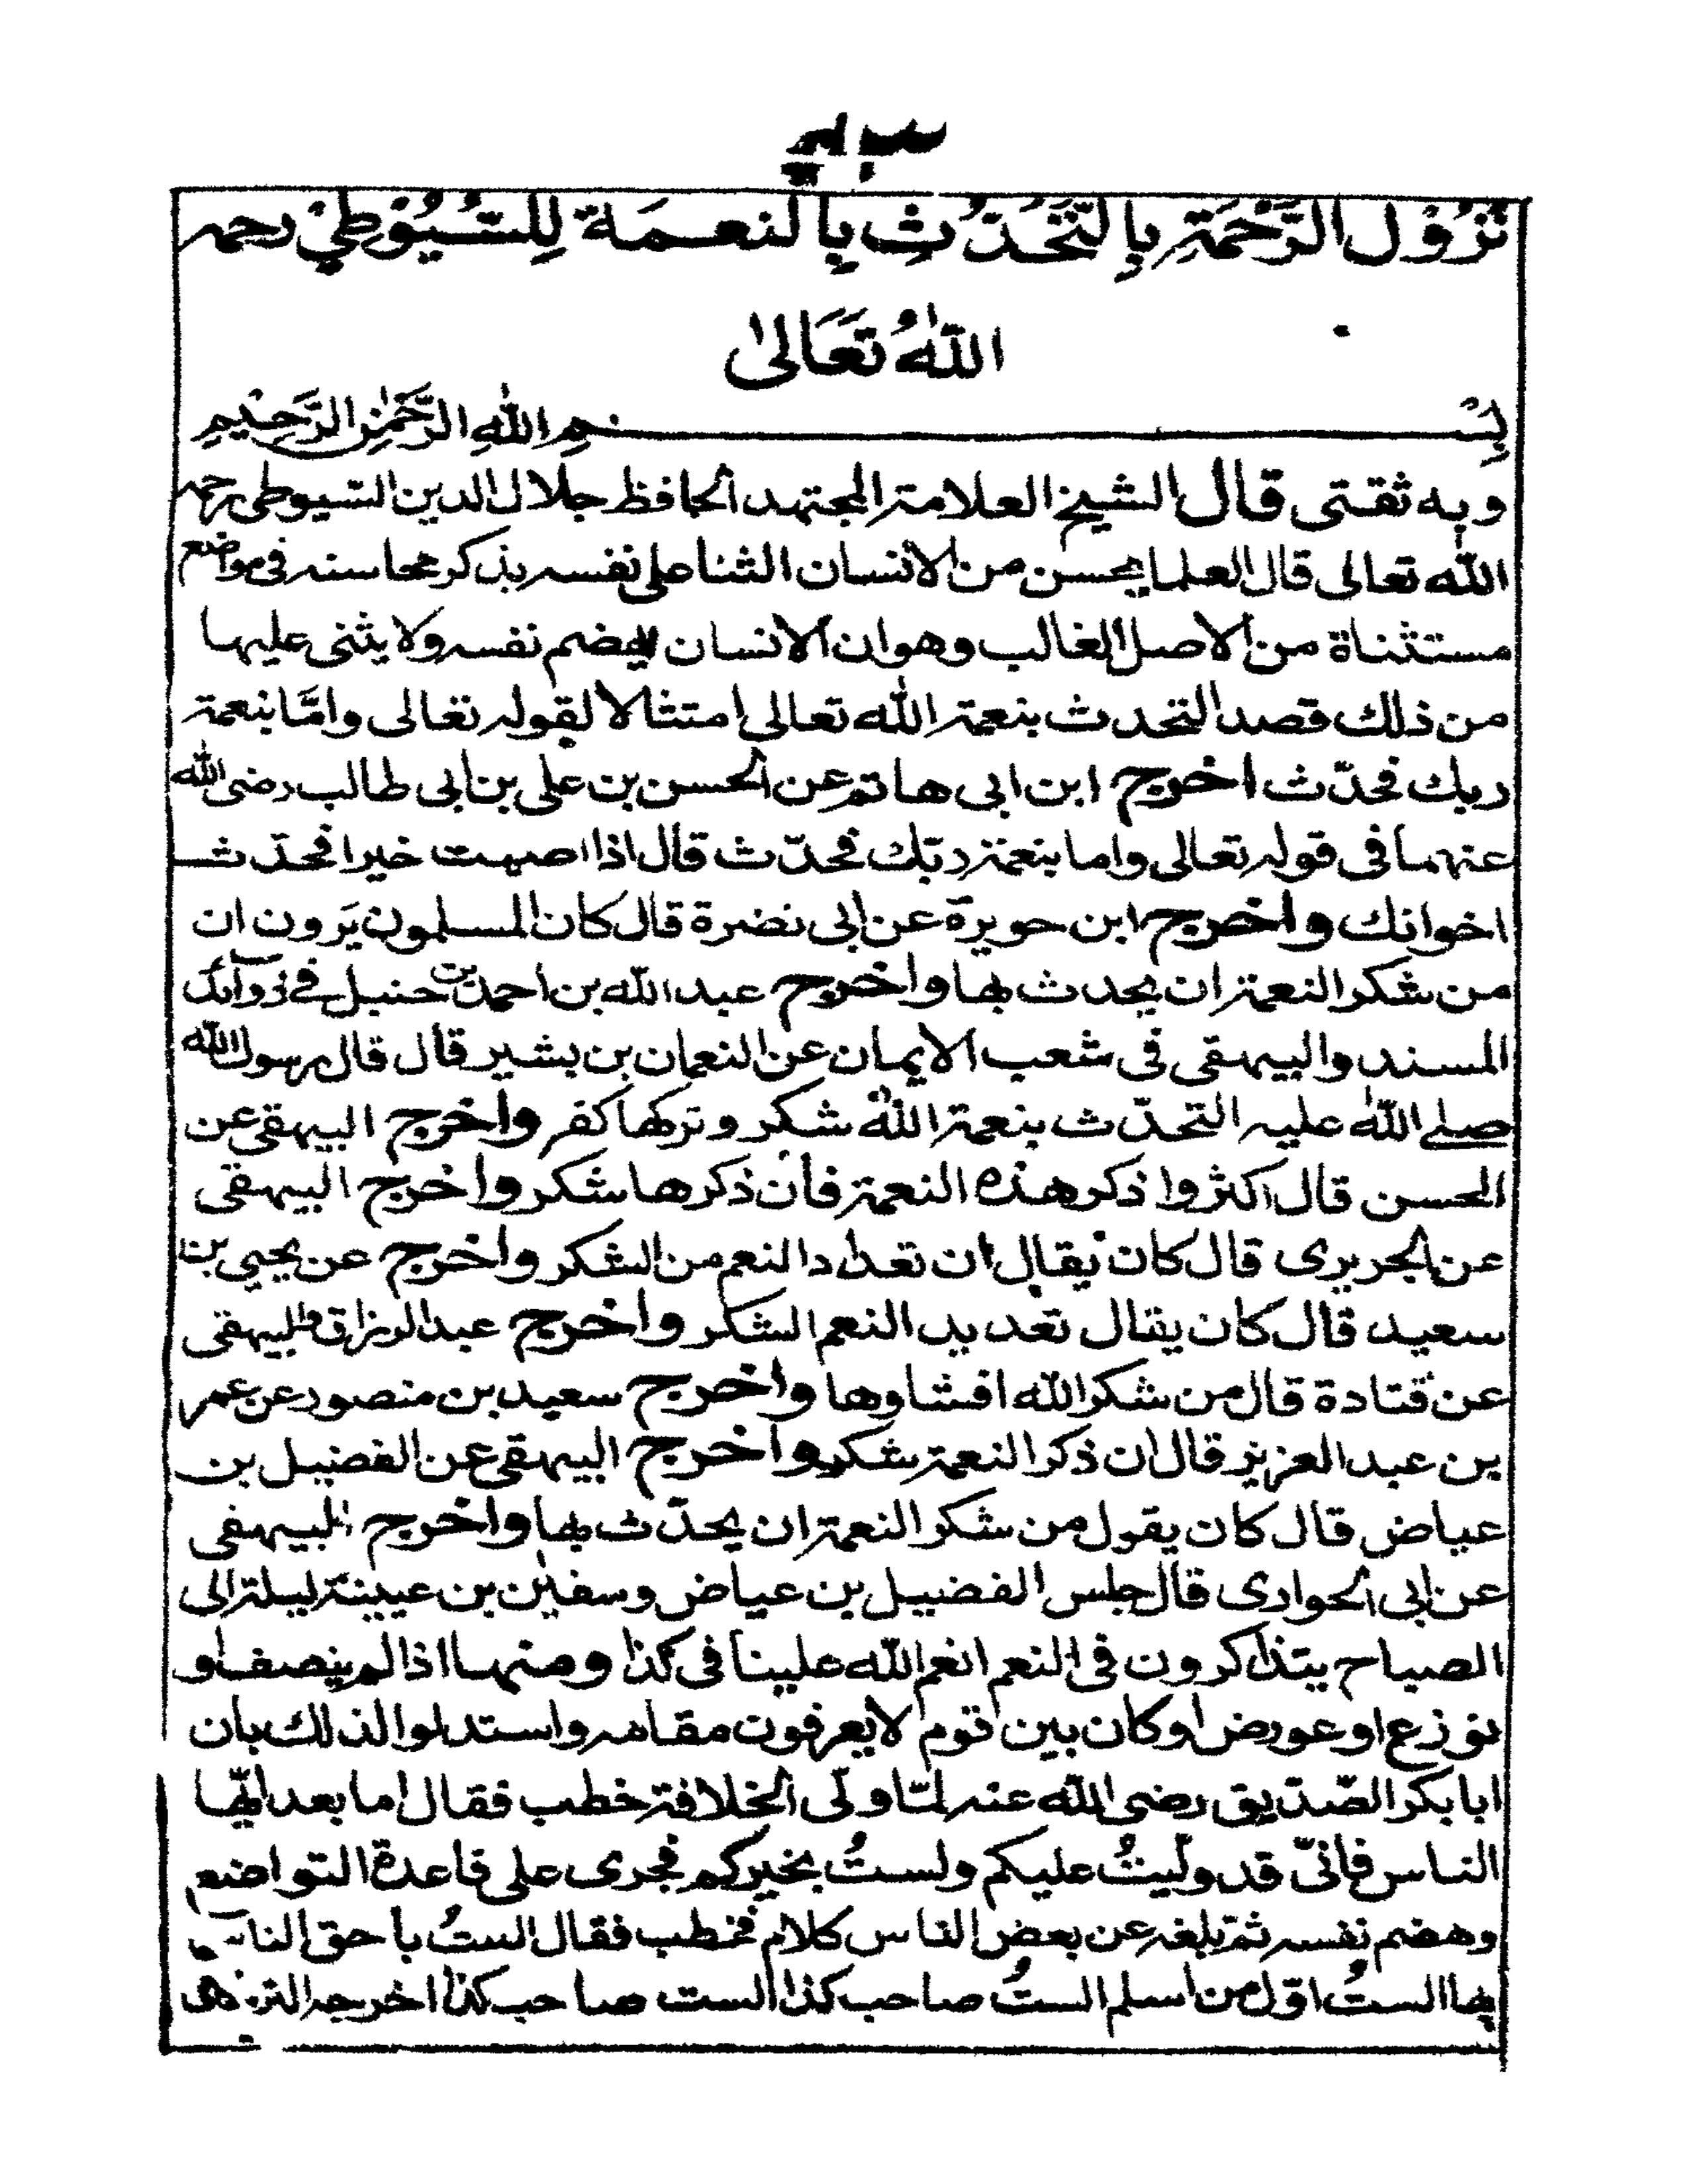 نُزُوْل الرَّحْمَةِ بِالتَّحَدُّثِ بِالنعمَة لِلسُّيُوْطِيْ رحمہ
اللهُ تَعَالیٰ
بِسْمِ اللهِ الرَّحْمٰنِ الرَّحِيْمِ
وبه ثقتی قال الشيخ العلامة المجتهد الحافظ جلال الدين السيوطی رحمہ
الله تعالى قال العلما يحسن من الانسان الثنا علی نفسه بذكر محاسنه فی مواضع
مستثناة من الاصل الغالب وهو ان الانسان يهضم نفسه ولا يثنی عليها
من ذلك قصد التحدث بنعمة الله تعالى امتثالا لقوله تعالى وامّا بنعمة
ربك فحدّث اخرج ابن ابی هاتم عن الحسن بن علی بن ابی طالب رضی الله
عنهما فی قوله تعالى واما بنعمة ربّك فحدّث قال اذا اصبت خيرا فحدّث
اخوانك واخرج ابن حويرة عن ابی نضرة قال كان المسلمون يَرون ان
من شكر النعمة ان يحدث بها واخرج عبد الله بن احمد بن حنبل فے زوائد
المسند والبيهقی فی شعب الايمان عن النعمان بن بشير قال قال رسول الله
صلے اللهُ عليه التحدّث بنعمة اللهُ شكر وتركها كفر واخرج البيهقی عن
الحسن قال اكثروا ذكر هذه النعمة فان ذكرها شكر واخرج البيهقی
عن الجريری قال كان يقال ان تعداد النعم من الشكر واخرج عن يحيی بن
سعيد قال كان يقال تعديد النعم الشكر واخرج عبد الرزاق والبيهقی
عن قتادة قال من شكر الله افشاوها واخرج سعيد بن منصور عن عمر
بن عبد العزيز قال ان ذكر النعمة شكر واخرج البيهقی عن الفضيل بن
عياض قال كان يقول من شكر النعمة ان يحدّث بها واخرج البيهقی
عن ابی الحواری قال جلس الفضيل بن عياض وسفيٰن بن عيينة ليلة الى
الصباح يتذاكرون فی النعم انعم الله علينا فی كذا ومنها اذا لم ينصف او
نوزع او عورض او كان بين قوم لا يعرفون مقامه واستدلوا لذلك بان
ابا بكر الصّدّيق رضی الله عنه لمّا ولّی الخلافة خطب فقال اما بعد ايّها
الناس فانیّ قد ولّيتُ عليكم ولستُ بخيركم فجری علی قاعدة التواضع
وهضم نفسه ثمّ بلغه عن بعض الناس كلام فخطب فقال الستُ باحق الناس
بها الستُ اوّل من اسلم الستُ صاحب كذا الست صاحب كذا اخرجه الترمذی